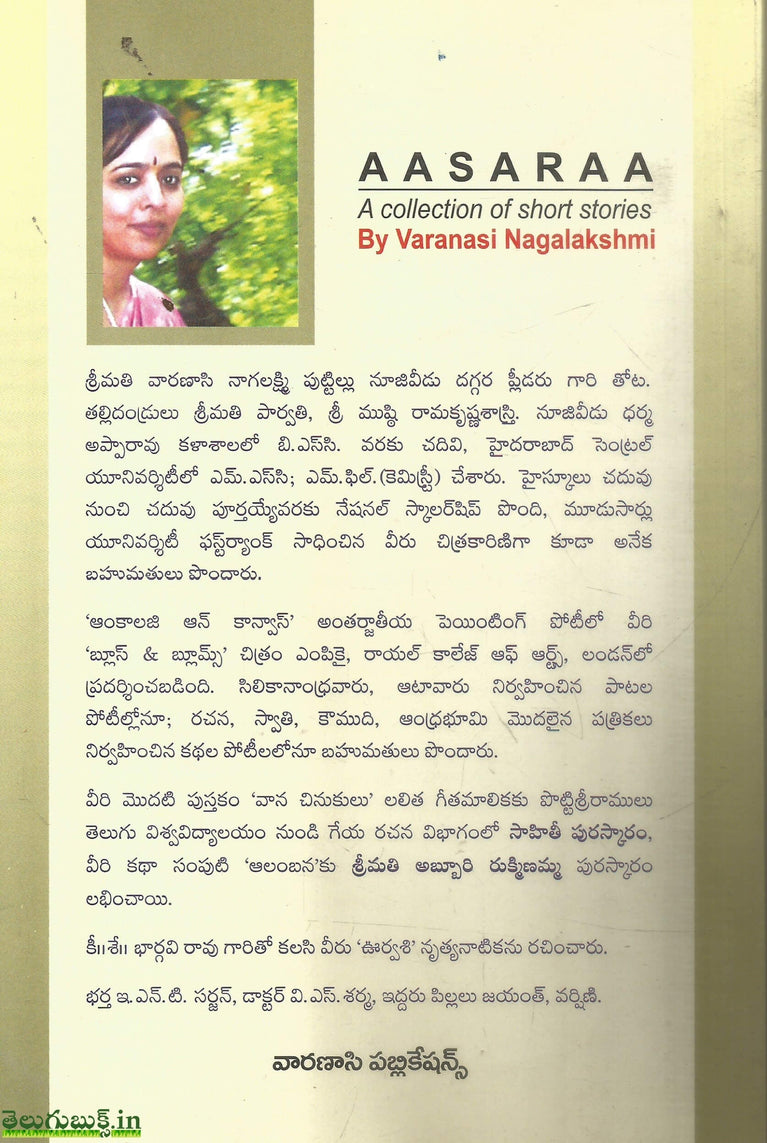 AASARAA
A collection of short stories
By Varanasi Nagalakshmi
శ్రీమతి వారణాసి నాగలక్ష్మి పుట్టిల్లు నూజివీడు దగ్గర ప్లీడరు గారి తోట.
తల్లిదండ్రులు శ్రీమతి పార్వతి, శ్రీ ముష్ఠి రామకృష్ణశాస్త్రి. నూజివీడు ధర్మ
అప్పారావు కళాశాలలో బి.ఎస్‌సి. వరకు చదివి, హైదరాబాద్ సెంట్రల్
యూనివర్శిటీలో ఎమ్.ఎస్‌సి; ఎమ్.ఫిల్.(కెమిస్ట్రీ) చేశారు. హైస్కూలు చదువు
నుంచి చదువు పూర్తయ్యేవరకు నేషనల్ స్కాలర్‌షిప్ పొంది, మూడుసార్లు
యూనివర్శిటీ ఫస్ట్‌ర్యాంక్ సాధించిన వీరు చిత్రకారిణిగా కూడా అనేక
బహుమతులు పొందారు.
‘ఆంకాలజి ఆన్ కాన్వాస్’ అంతర్జాతీయ పెయింటింగ్ పోటీలో వీరి
‘బ్లూస్ & బ్లూమ్స్’ చిత్రం ఎంపికై, రాయల్ కాలేజ్ ఆఫ్ ఆర్ట్స్, లండన్‌లో
ప్రదర్శించబడింది. సిలికానాంధ్రవారు, ఆటావారు నిర్వహించిన పాటల
పోటీల్లోనూ; రచన, స్వాతి, కౌముది, ఆంధ్రభూమి మొదలైన పత్రికలు
నిర్వహించిన కథల పోటీలలోనూ బహుమతులు పొందారు.
వీరి మొదటి పుస్తకం ‘వాన చినుకులు’ లలిత గీతమాలికకు పొట్టిశ్రీరాములు
తెలుగు విశ్వవిద్యాలయం నుండి గేయ రచన విభాగంలో సాహితీ పురస్కారం,
వీరి కథా సంపుటి ‘ఆలంబన’కు శ్రీమతి అబ్బూరి రుక్మిణమ్మ పురస్కారం
లభించాయి.
కీ॥శే॥ భార్గవి రావు గారితో కలసి వీరు ‘ఊర్వశి’ నృత్యనాటికను రచించారు.
భర్త ఇ.ఎన్.టి. సర్జన్, డాక్టర్ వి.ఎస్.శర్మ, ఇద్దరు పిల్లలు జయంత్, వర్షిణి.
వారణాసి పబ్లికేషన్స్
తెలుగుబుక్స్.in